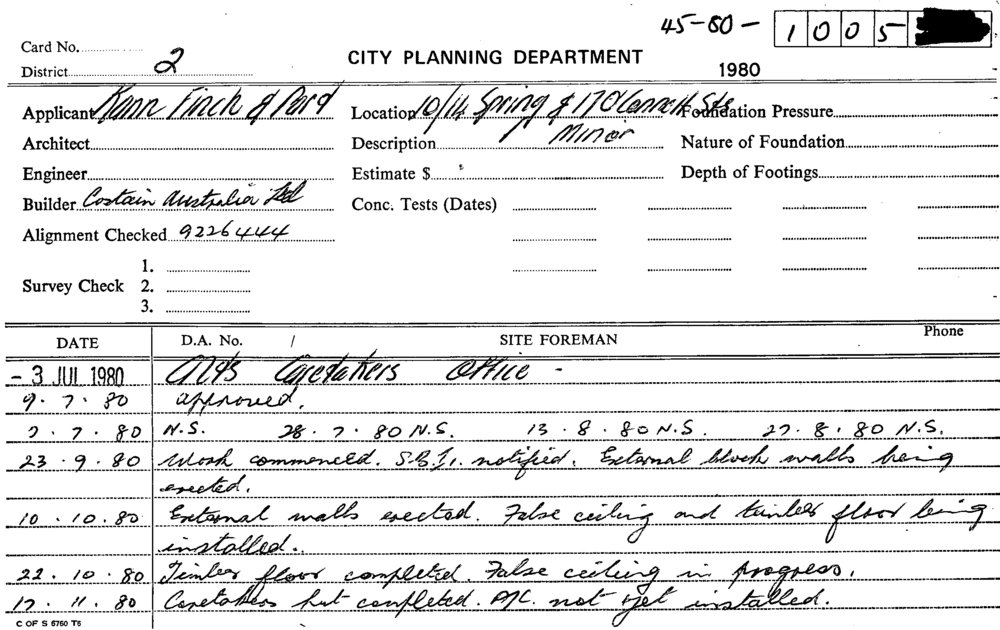 45-80- 1005
Card No.
District 2
CITY PLANNING DEPARTMENT
1980
Applicant Kann Finch & Part
Location 10/14 Spring & 17 O'Connell Sts
Foundation Pressure
Architect
Description Minor
Nature of Foundation
Engineer
Estimate $
Depth of Footings
Builder Costain Australia Ltd
Conc. Tests (Dates)
Alignment Checked 9226444
Survey Check
1.
2.
3.
DATE D.A. No. SITE FOREMAN Phone
- 3 JUL 1980 Caretakers Office -
9. 7. 80 approved.
7. 80 N.S. 28. 7. 80 N.S. 13. 8. 80 N.S. 27. 8. 80 N.S.
23. 9. 80 Work commenced. S.B.I. notified. External block walls being
erected.
10. 10. 80 External walls erected. False ceiling and timber floor being
installed.
22. 10. 80 Timber floor completed. False ceiling in progress.
17. 11. 80 Caretakers hut completed. A/C. not yet installed.
C OF S 6760 T6